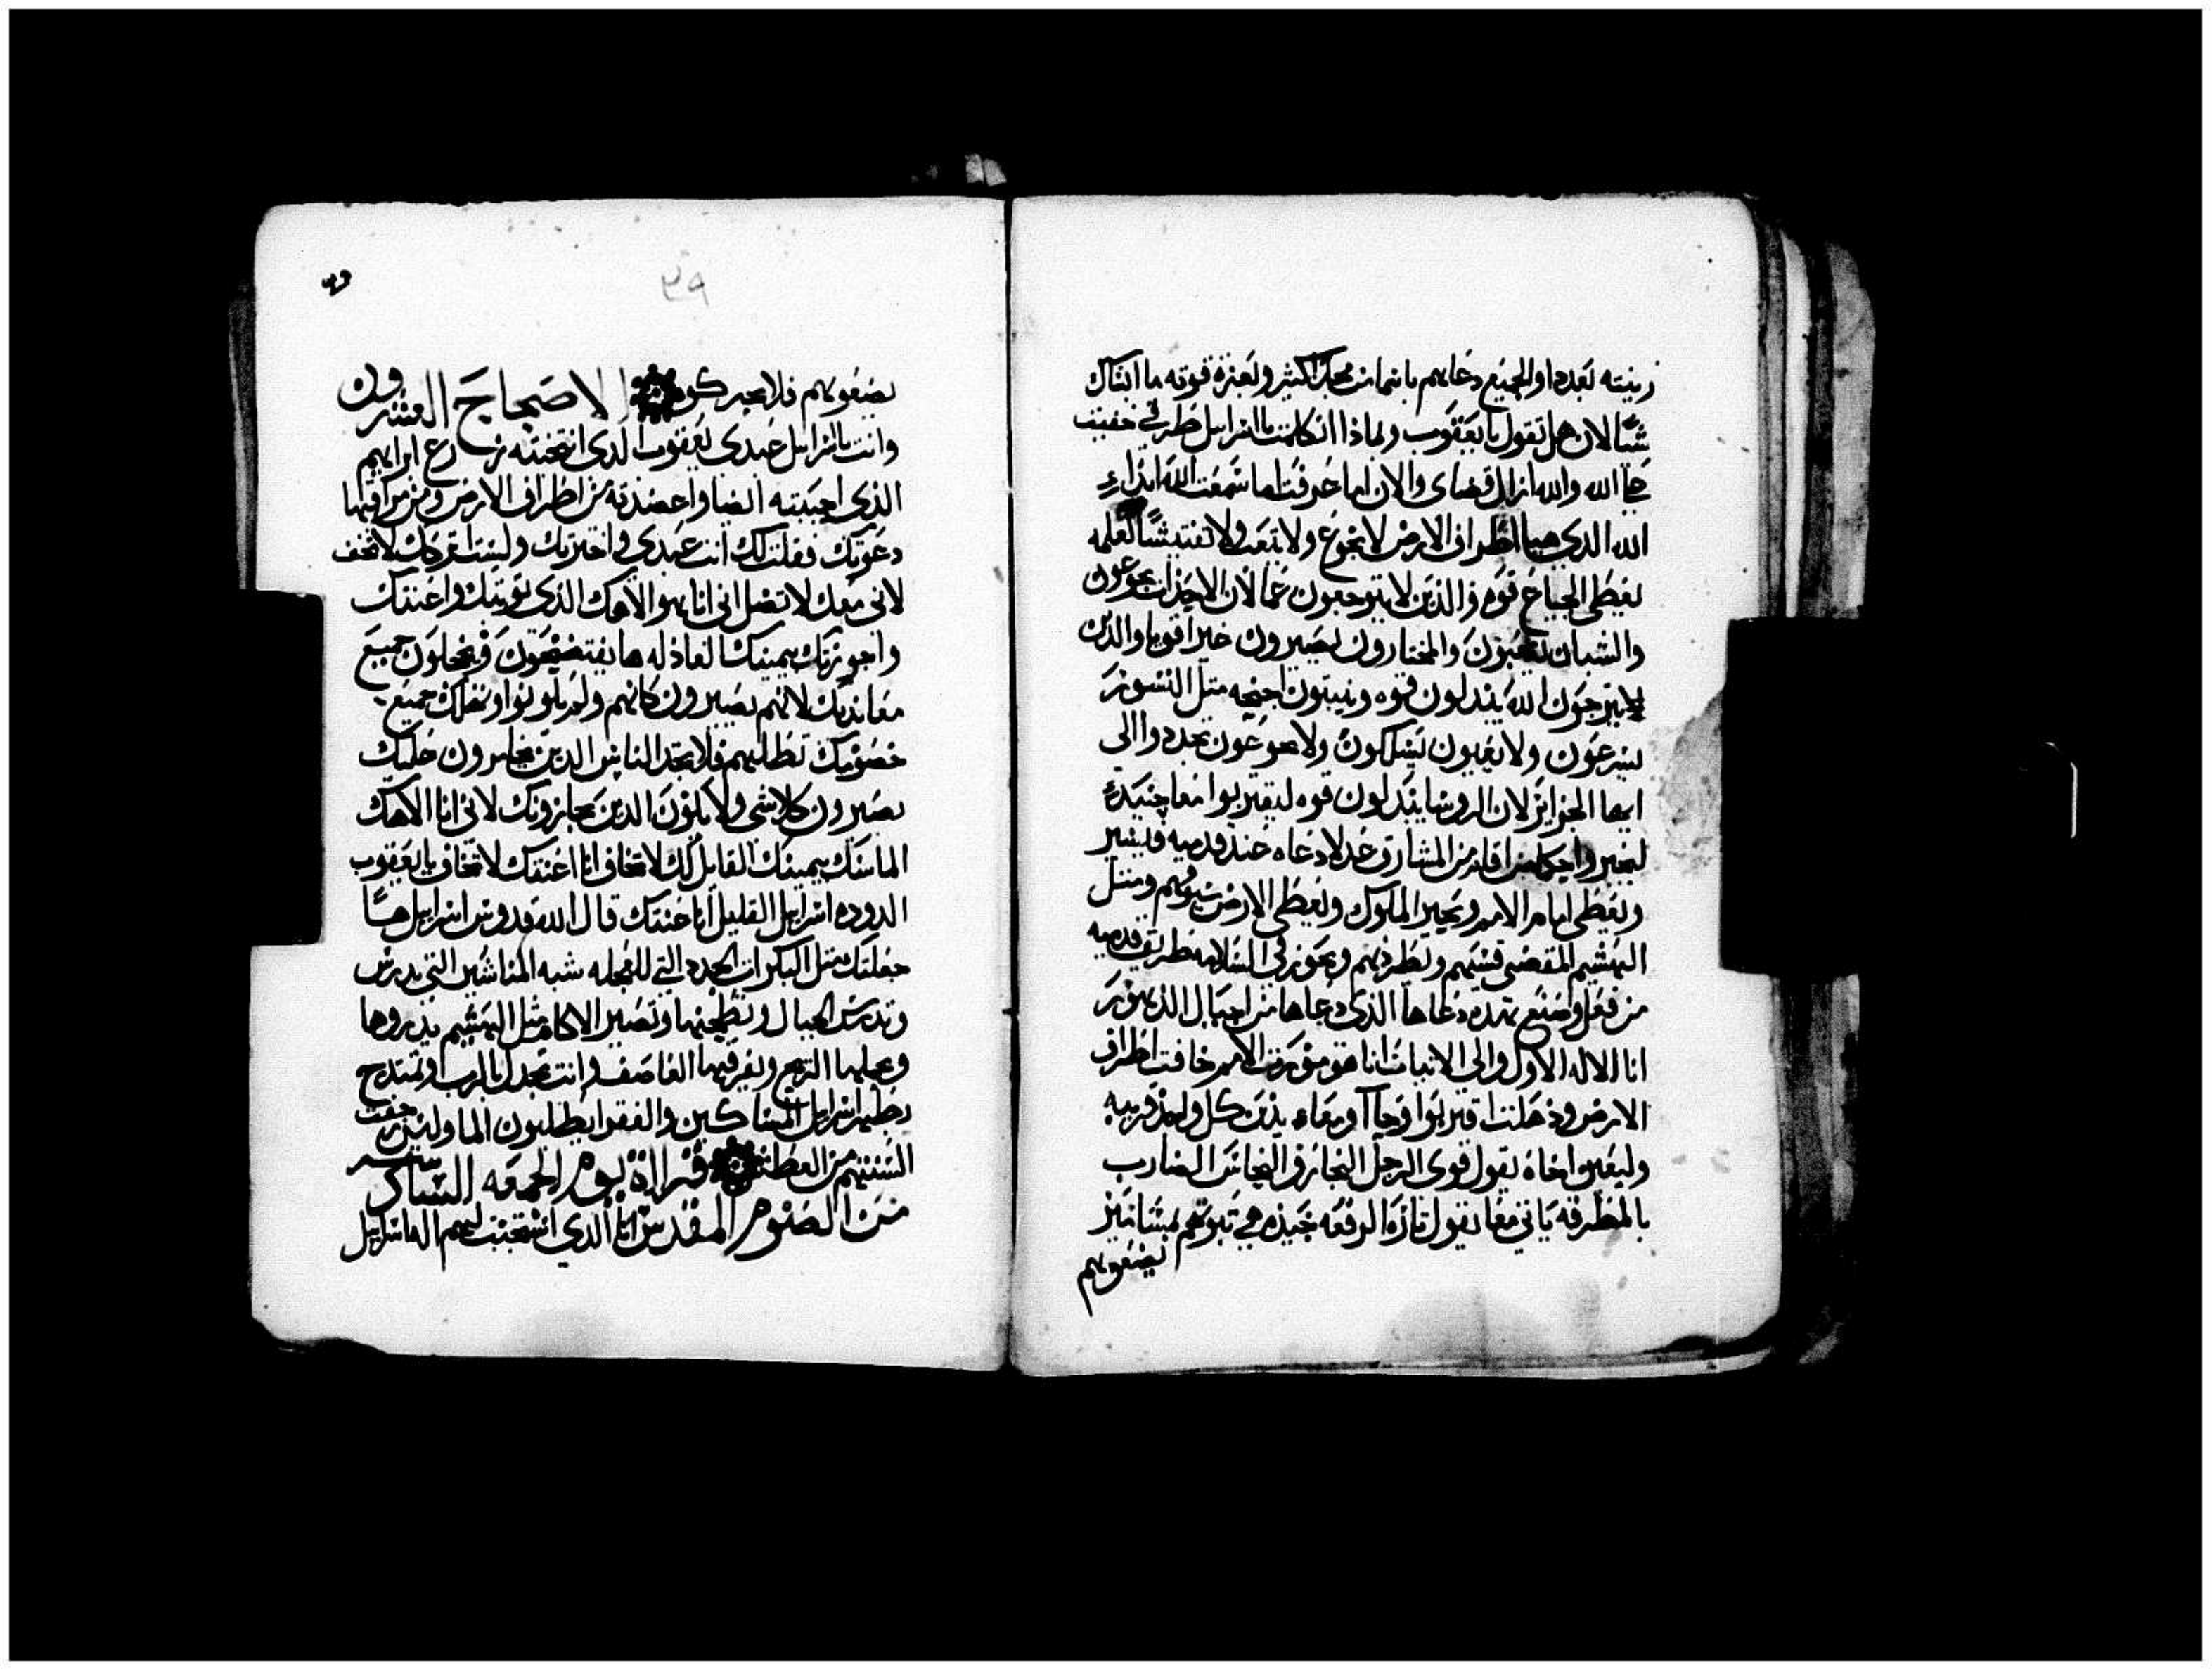 زينته بعددا والجميع دعاهم باسما من مجدك الكثير ولعزة قوته ما انتاك
شيًا لان هل تقول يا يعقوب ولماذا اتكلمت يا اسراييل طرقي خفيت
عن الله والله ازال قضاى والان اما عرفت اما سمعت الله ابداء
الله الذي هيا اطراف الارض لا يجوع ولا يتعب ولا تفتيشًا لعلمه
يعطي الجياع قوه والذين لا يتوجعون غمًا لان الاحداث يجوعون
والشبان يتعبون والمختارون يصيرون خير اقويا والذين
يترجون الله يبدلون قوه وينبتون اجنحه مثل النسور
يسرعون ولا يعيون يسلكون ولا يجوعون تجددوا الي
ايها الجزاير لان الروسا يبدلون قوه ليقتربوا معا حينيذٍ
ليخبروا احكاما من اقام من المشارق عدلا دعاه عند قدميه فيسير
ويعطي امام الامم ويحير الملوك ويعطي الارض سيوفهم ومثل
الهشيم المقضي قسيهم ويطردهم ويجوز في السلامه طريق قدميه
من فعل وصنع بهذه دعاها الذي دعاها من اجيال الدهور
انا الاله الاول والي الاتيات انا هو موزنت الامم خافت اطراف
الارض وذهلت اقتربوا وجاآ ومعاء يدين كل واحد قريبه
وليعين اخاه يقول قوي الرجل النجار والنحاس الضارب
بالمطرقه ياتي معا يقول تارة الرقعه جيده هي ثبوتهم بمسامير
يضعونهم
٣٩
يضعونهم فلا يتحركون الاصحاح العشرون
وانت يا اسراييل عبدي يعقوب الذي انتخبته زرع ابراهيم
الذي احببته ايضا واعضدته من اطراف الارض ومن مراقيها
دعوتك فقلت لك انت عبدي واخترتك وليس اتركك لا تخف
لاني معك لا تضل اني انا هو الاهك الذي قويتك واعنتك
واحرزتك بيمينك العادله ها يفتضحون ويخجلون جميع
معانديك لانهم يصيرون كانهم ولم يكونوا وتهلك جميع
خصوميك تطلبهم فلا تجد الناس الذين يخامرون عليك
يصيرون كلا شي ولا يكون الذين يحاربونك لاني انا الاهك
الماسك بيمينك القايل لك لا تخاف انا اعنتك لا تخاف يا يعقوب
الدوده اسراييل القليل انا اعنتك قال الله قدوس اسراييل هيا
جعلتك مثل البكرات الجدد التي للعجله شبه المناشير التي تدرس
وتدرس الجبال وتطحنها وتصير الاكام مثل الهشيم يدروها
ويحملها الريح ويفرقها العاصف وانت تجدل بالرب وتمتدح
بطهر اسراييل المساكين والفقرا يطلبون الما وليس جفت
السنتهم من العطش قراة يوم الجمعه السادسه
من الصوم المقدس انا الذي استجبت لهم اله اسراييل